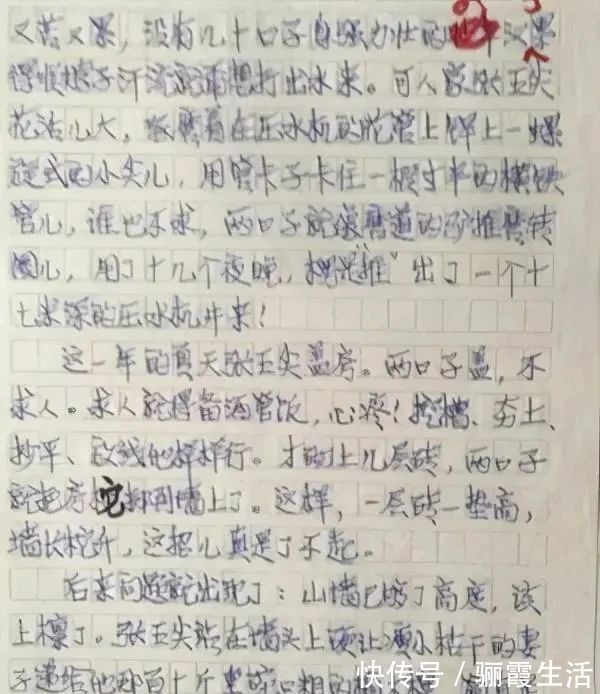 又苦又累，没有几十口子身强力壮的汉累
得顺脖子汗流就甭想打出水来。可人家张玉尖
花活儿大，依葫芦在压水机的蛇管上焊上一螺
旋式的小尖儿，用管卡子卡住一根寸半的横铁
管儿，谁也不求，两口子就像磨道的驴推磨转
圈儿，用了十几个夜晚，楞是“推”出了一个十
七米深的压水机井来！
这一年的夏天张玉尖盖房。两口子盖，不
求人。求人就得备酒管饭，心疼！挖槽、夯土、
抄平、放线他样样行。才砌上几层砖，两口子
就把房柁抬到墙上了。这样，一层砖一垫高，
墙长柁升，这招儿真是了不起。
后来问题就出现了：山墙已垒了高底，该
上檩了。张玉尖站在墙头上硬让瘦小枯干的妻
子递给他那百十斤
快传号／骊霞生活